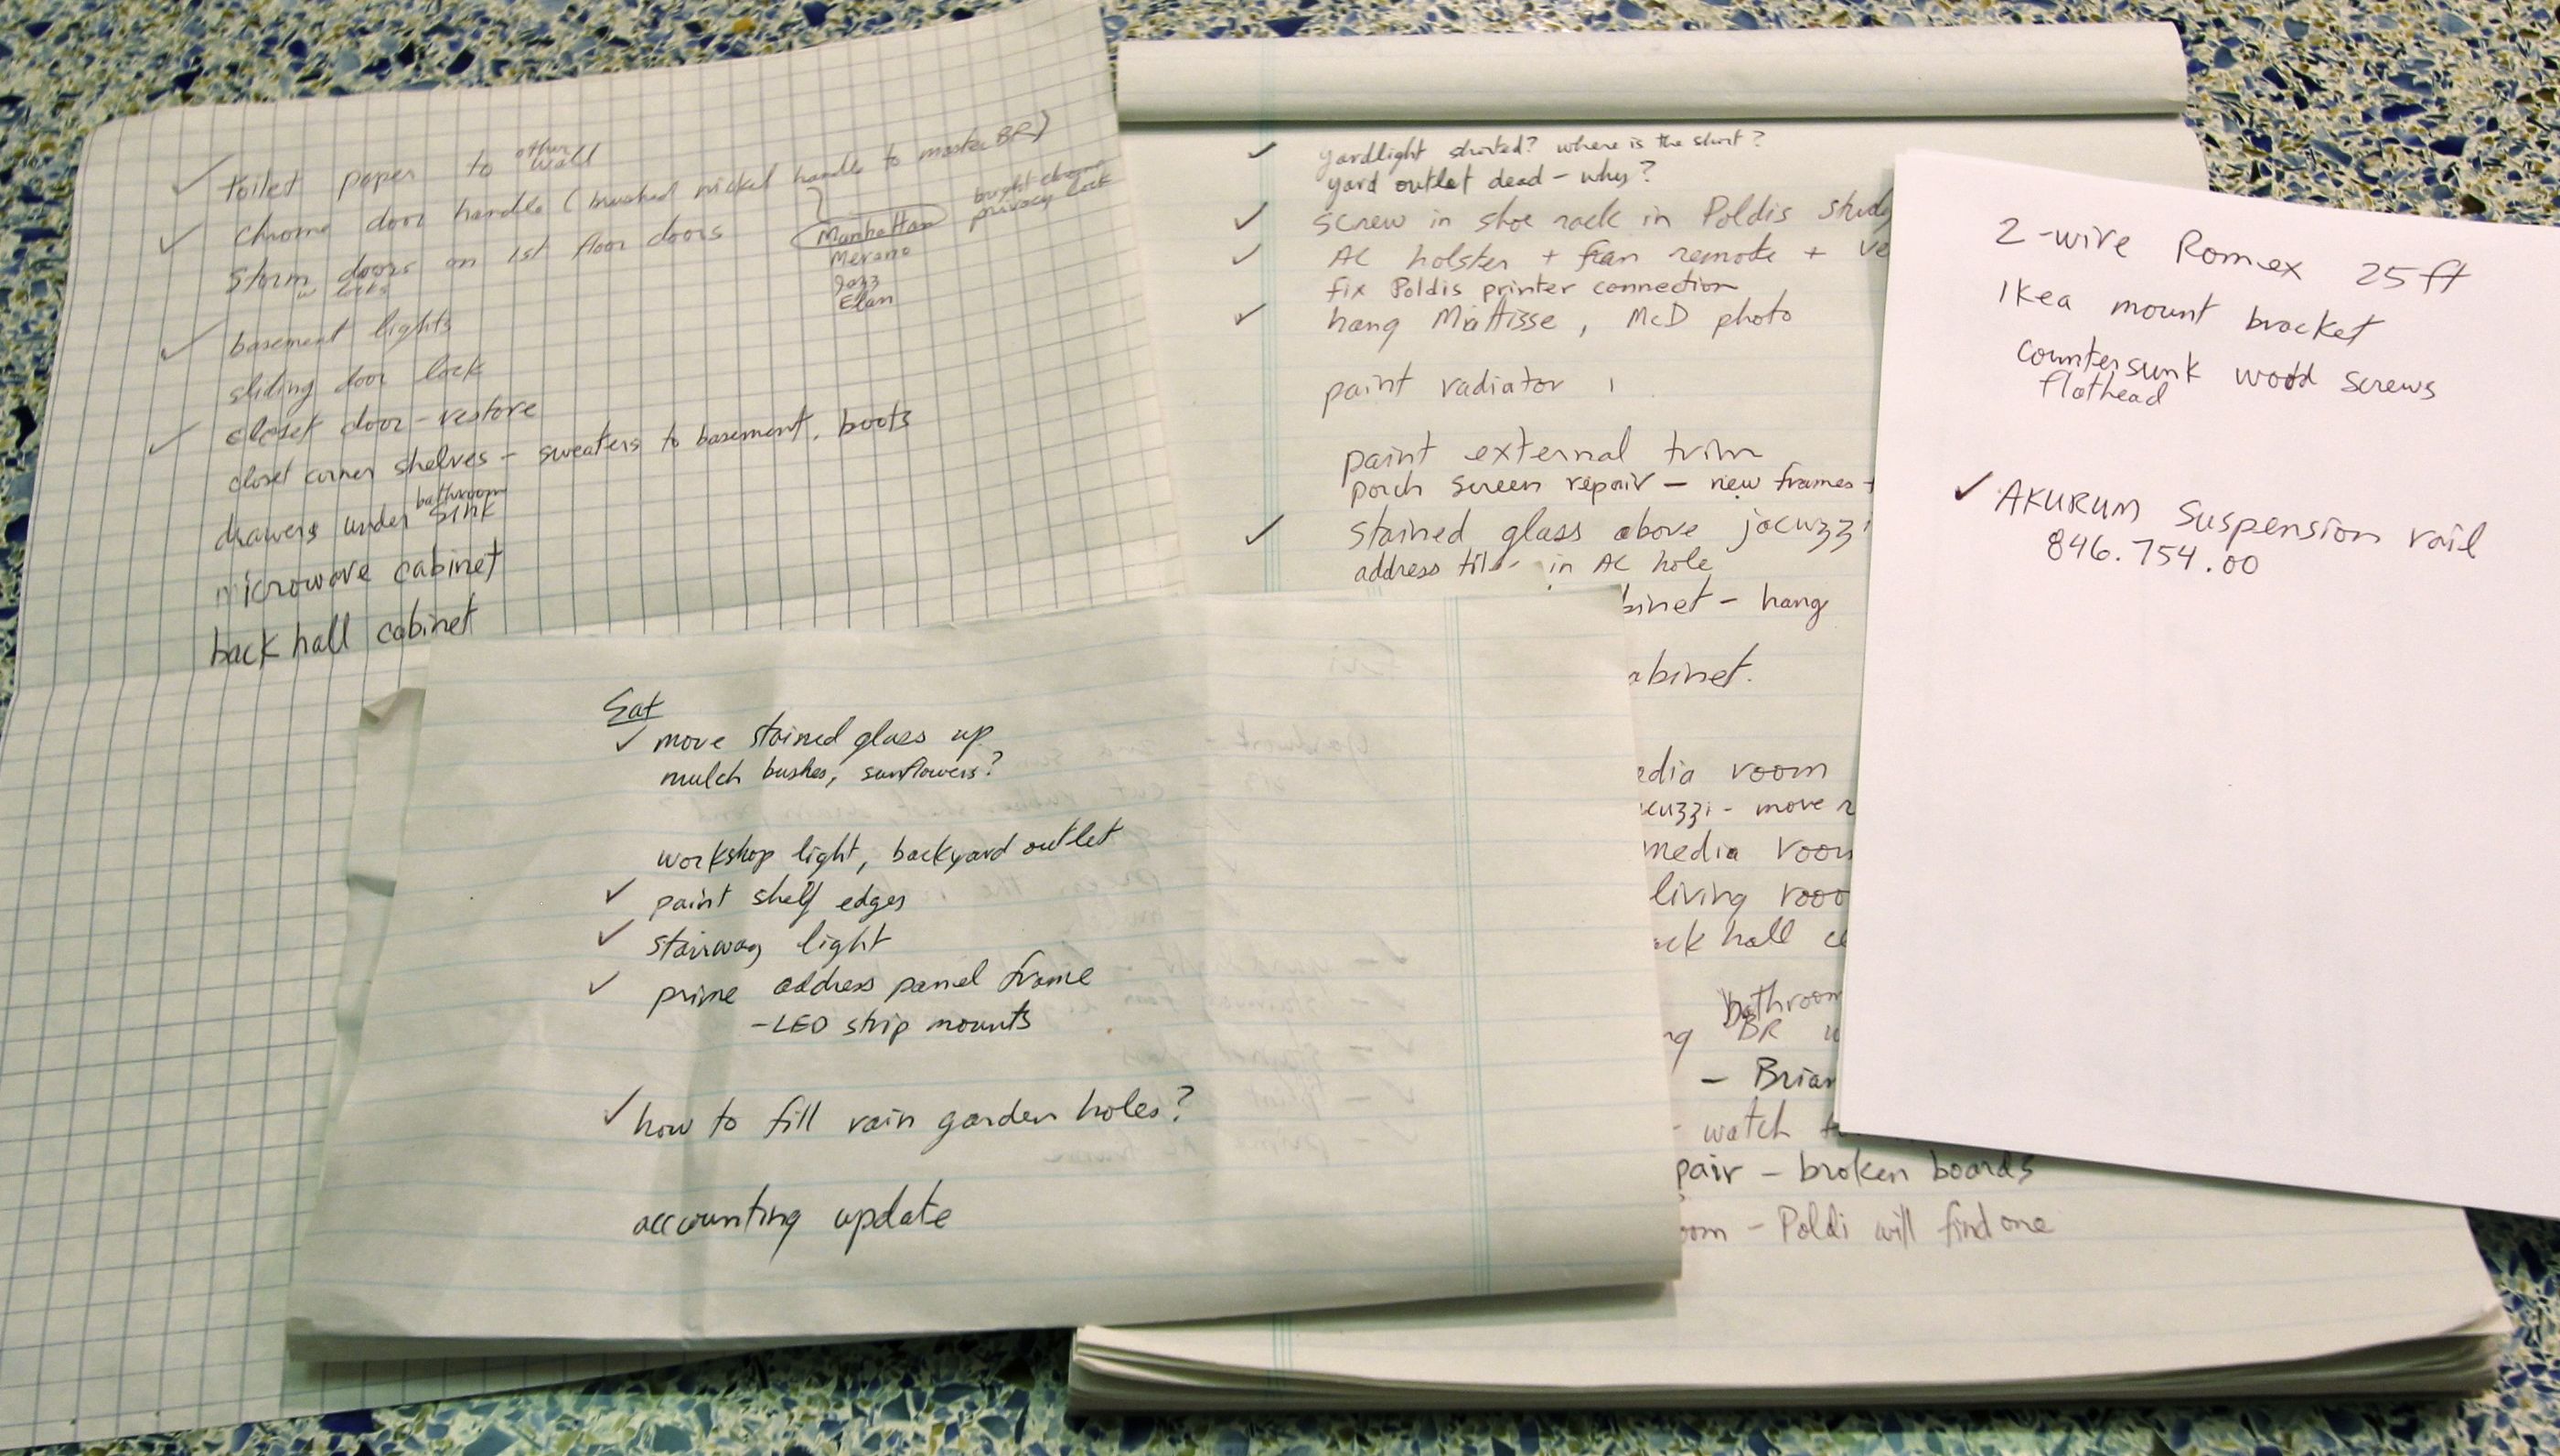 toilet paper to other wall
chrome door handle (brushed nickel handle to master BR)
Manhattan
Merano
Jazz
Elan
bright chrome
privacy lock
storm doors on 1st floor doors
w locks
basement lights
sliding door lock
closet door - restore
closet corner shelves - sweaters to basement, boots
drawers under bathroom sink
microwave cabinet
back hall cabinet
yardlight shorted? where is the short?
yard outlet dead - why?
screw in shoe rack in Poldis study
AC holster + fan remote +
fix Poldis printer connection
hang Mattisse, McD photo
paint radiator
paint external trim
porch screen repair - new frames
stained glass above jacuzzi
address in AC hole
binet - hang
abinet.
edia room
cuzzi - move
media room
living rooo
ck hall
bathroom
BR
- Brian
- watch
pair - broken boards
oom - Poldi will find one
2-wire Romex 25ft
Ikea mount bracket
countersunk wood screws
flathead
✓ AKURUM suspension rail
846.754.00
Sat
✓ move stained glass up
mulch bushes, sunflowers?
workshop light, backyard outlet
✓ paint shelf edges
✓ stairway light
✓ prime address panel frame
- LED strip mounts
✓ how to fill rain garden holes?
accounting update